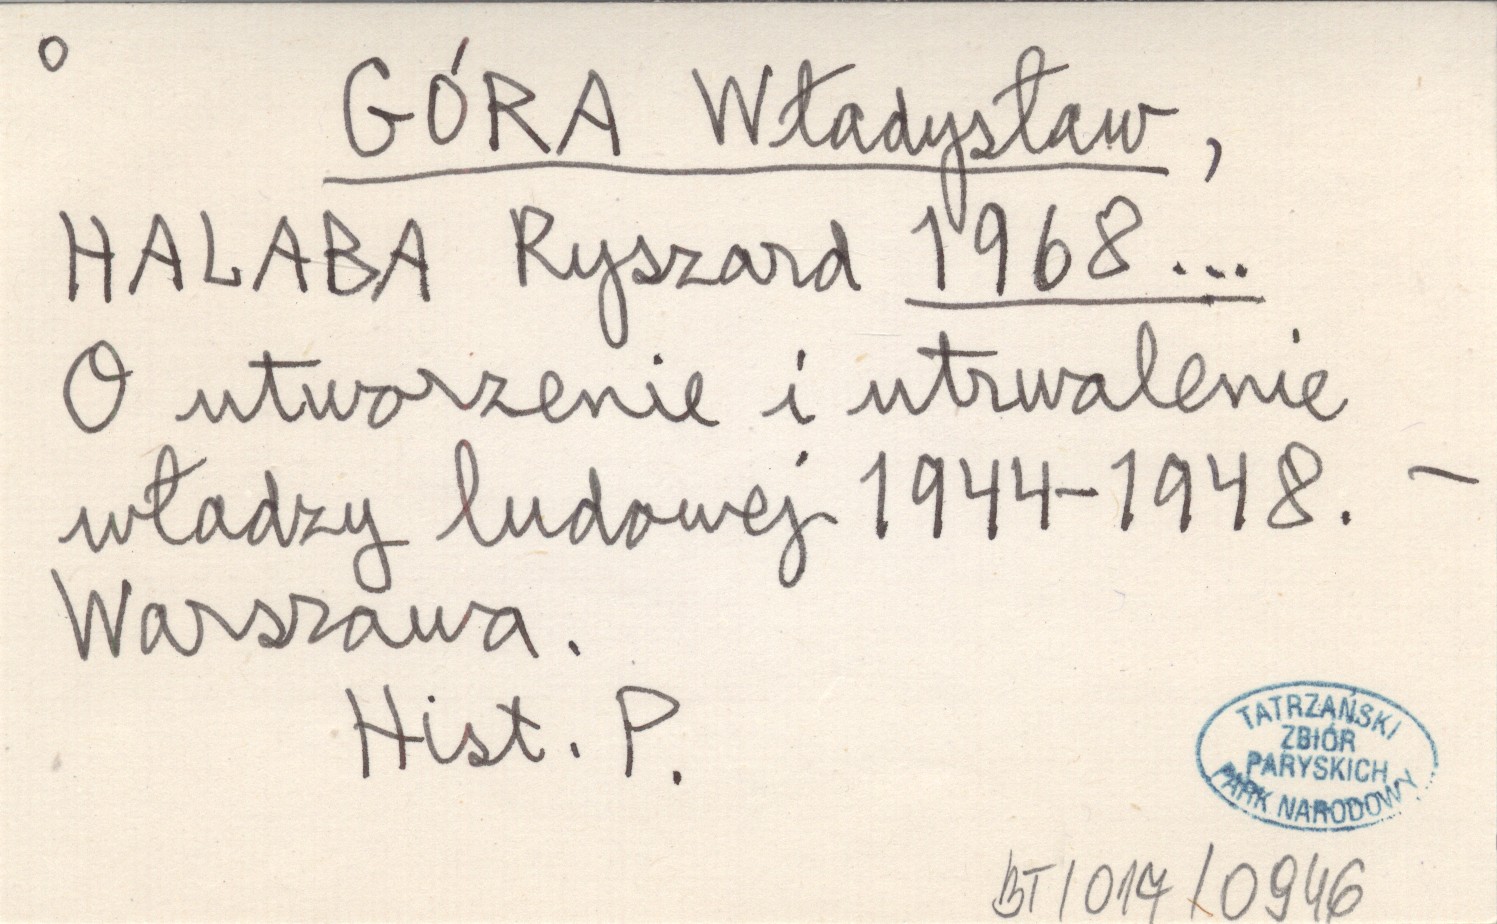 o
GÓRA Władysław,
HALABA Ryszard 1968...
O utworzenie i utrwalenie
władzy ludowej 1944-1948. –
Warszawa.
Hist. P.
TATRZAŃSKI
ZBIÓR
PARYSKICH
PARK NARODOWY
BT/017/0946